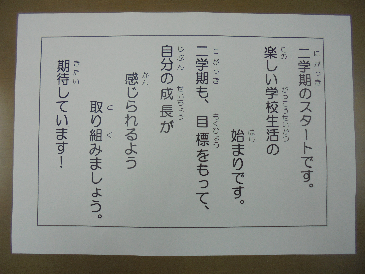 二学期のスタートです。
楽しい学校生活の
始まりです。
二学期も、目標をもって、
自分の成長が
感じられるよう
取り組みましょう。
期待しています！